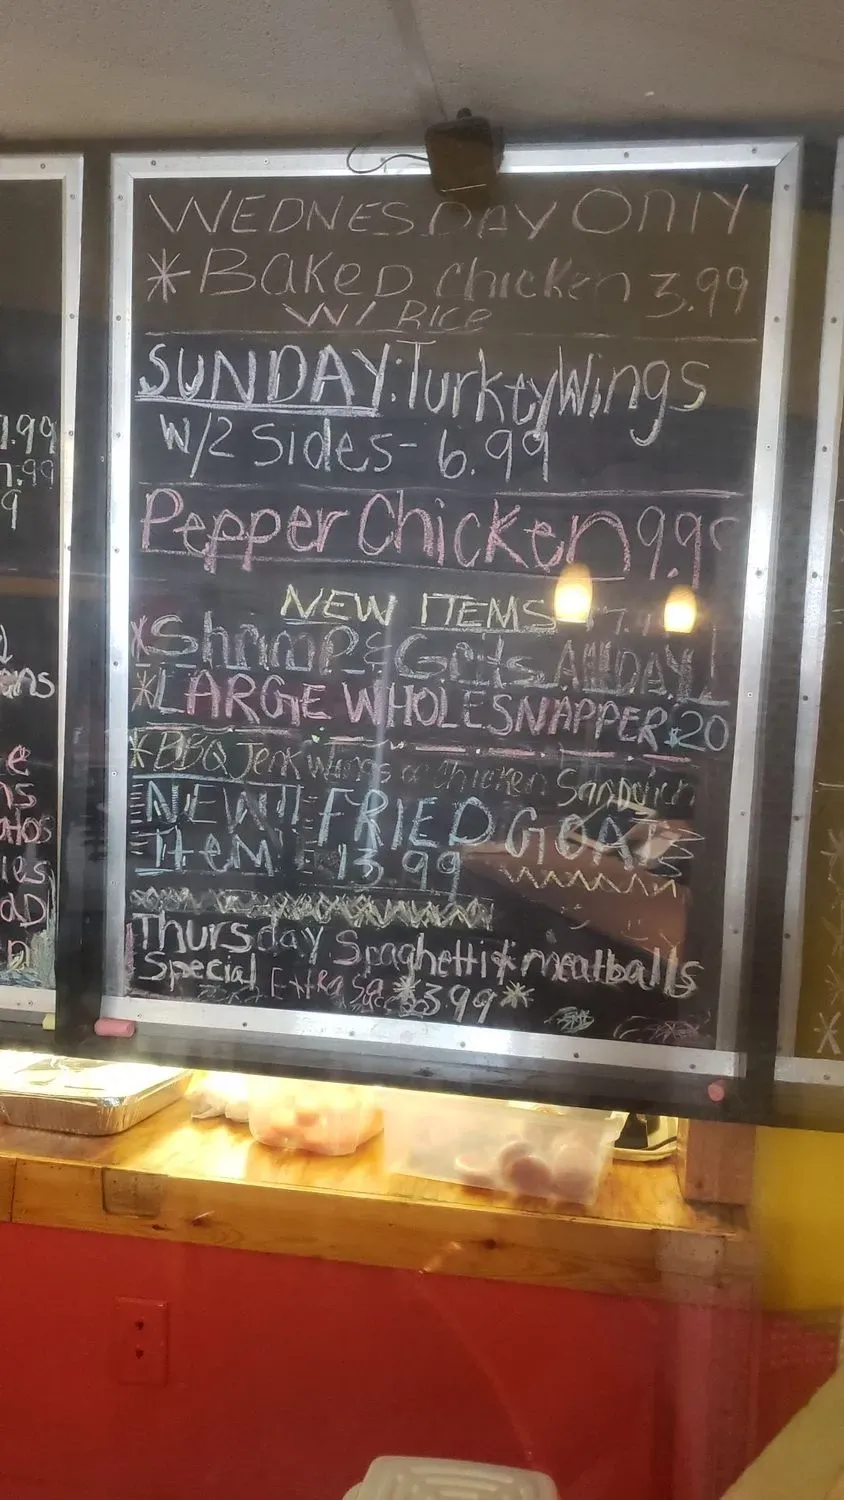 WEDNESDAY ONLY
*BAKED Chicken 3.99
W/ RICE
SUNDAY: Turkey Wings
W/2 Sides- 6.99
Pepper Chicken 9.9
NEW ITEMS
*Shrimp & Grits All DAY!
*LARGE WHOLE SNAPPER $20
*BBQ Jerk Wings or Chicken Sandwich
NEW!! FRIED GOAT
Item 13.99
Thursday Spaghetti & meatballs
Special Extra *3.99*
1.99
7.99
9
ens
e
ns
ies
aD
n